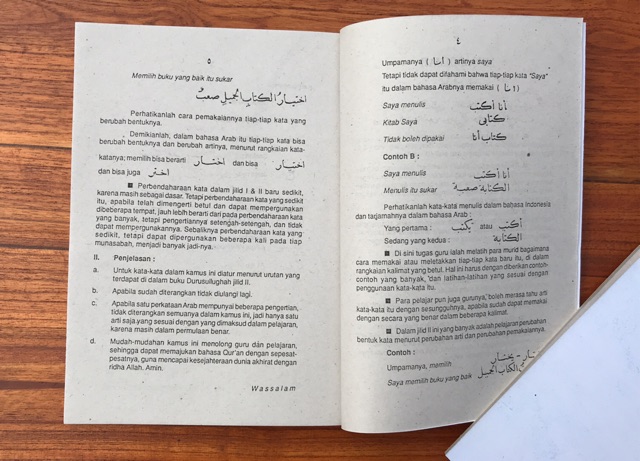 ٤
Umpamanya ( أنا ) artinya saya
Tetapi tidak dapat difahami bahwa tiap-tiap kata "Saya"
itu dalam bahasa Arabnya memakai ( أنا )
Saya menulis أنا أكتب
Kitab Saya كتابي
Tidak boleh dipakai كتاب أنا
Contoh B :
Saya menulis أنا أكتب
Menulis itu sukar الكتابة صعبة
Perhatikanlah kata-kata menulis dalam bahasa Indonesia
dan tarjamahnya dalam bahasa Arab :
Yang pertama : أكتب atau يكتب
Sedang yang kedua : الكتابة
■ Di sini tugas guru ialah melatih para murid bagaimana
cara memakai atau meletakkan tiap-tiap kata baru itu, di dalam
rangkaian kalimat yang betul. Hal ini harus dengan diberikan contoh-
contoh yang banyak, dan latihan-latihan yang sesuai dengan
penggunaan kata-kata itu.
■ Para pelajar pun juga gurunya, boleh merasa tahu arti
kata-kata itu dengan sesungguhnya, apabila sudah dapat memakai
dengan secara yang benar dalam beberapa kalimat.
■ Dalam jilid II ini yang banyak adalah pelajaran perubahan
bentuk kata menurut perubahan arti dan perubahan pemakaiannya.
Contoh :
Umpamanya, memilih - يختار
Saya memilih buku yang baik الكتاب الجميل
٥
Memilih buku yang baik itu sukar
اختيار الكتاب الجميل صعب
Perhatikanlah cara pemakaiannya tiap-tiap kata yang
berubah bentuknya.
Demikianlah, dalam bahasa Arab itu tiap-tiap kata bisa
berubah bentuknya dan berubah artinya, menurut rangkaian kata-
katanya; memilih bisa berarti اختار dan bisa اختيار
dan bisa juga اختر
■ Perbendaharaan kata dalam jilid I & II baru sedikit,
karena masih sebagai dasar. Tetapi perbendaharaan kata yang sedikit
itu, apabila telah dimengerti betul dan dapat mempergunakan
dibeberapa tempat, jauh lebih berarti dari pada perbendaharaan kata
yang banyak, tetapi pengertiannya setengah-setengah, dan tidak
dapat mempergunakannya. Sebaliknya perbendaharaan kata yang
sedikit, tetapi dapat dipergunakan beberapa kali pada tiap
munasabah, menjadi banyak jadi-nya.
II. Penjelasan :
a. Untuk kata-kata dalam kamus ini diatur menurut urutan yang
terdapat di dalam buku Durusullughah jilid II.
b. Apabila sudah diterangkan tidak diulang lagi.
c. Apabila satu perkataan Arab mempunyai beberapa pengertian,
tidak diterangkan semuanya dalam kamus ini, jadi hanya satu
arti saja yang sesuai dengan yang dimaksud dalam pelajaran,
karena masih dalam permulaan benar.
d. Mudah-mudahan kamus ini menolong guru dan pelajar,
sehingga dapat memajukan bahasa Qur'an dengan sepesat-
pesatnya, guna mencapai kesejahteraan dunia akhirat dengan
ridha Allah. Amin.
Wassalam